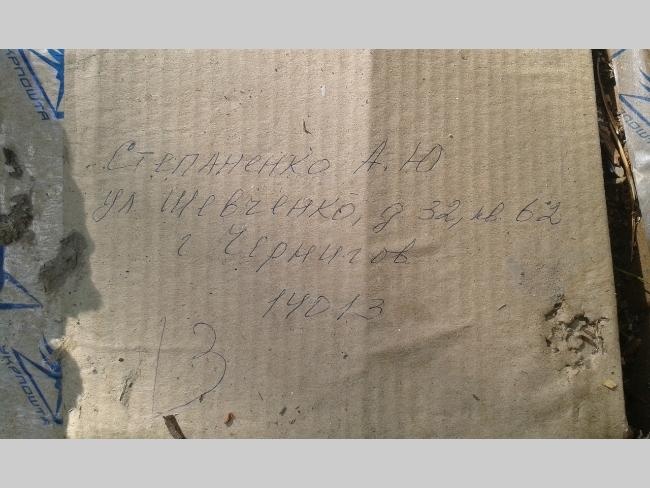 УКРПОШТА
Степаненко А.Ю
ул Шевченко, д 32, кв. 62
г Чернигов
14013
13
УКРПОШТА